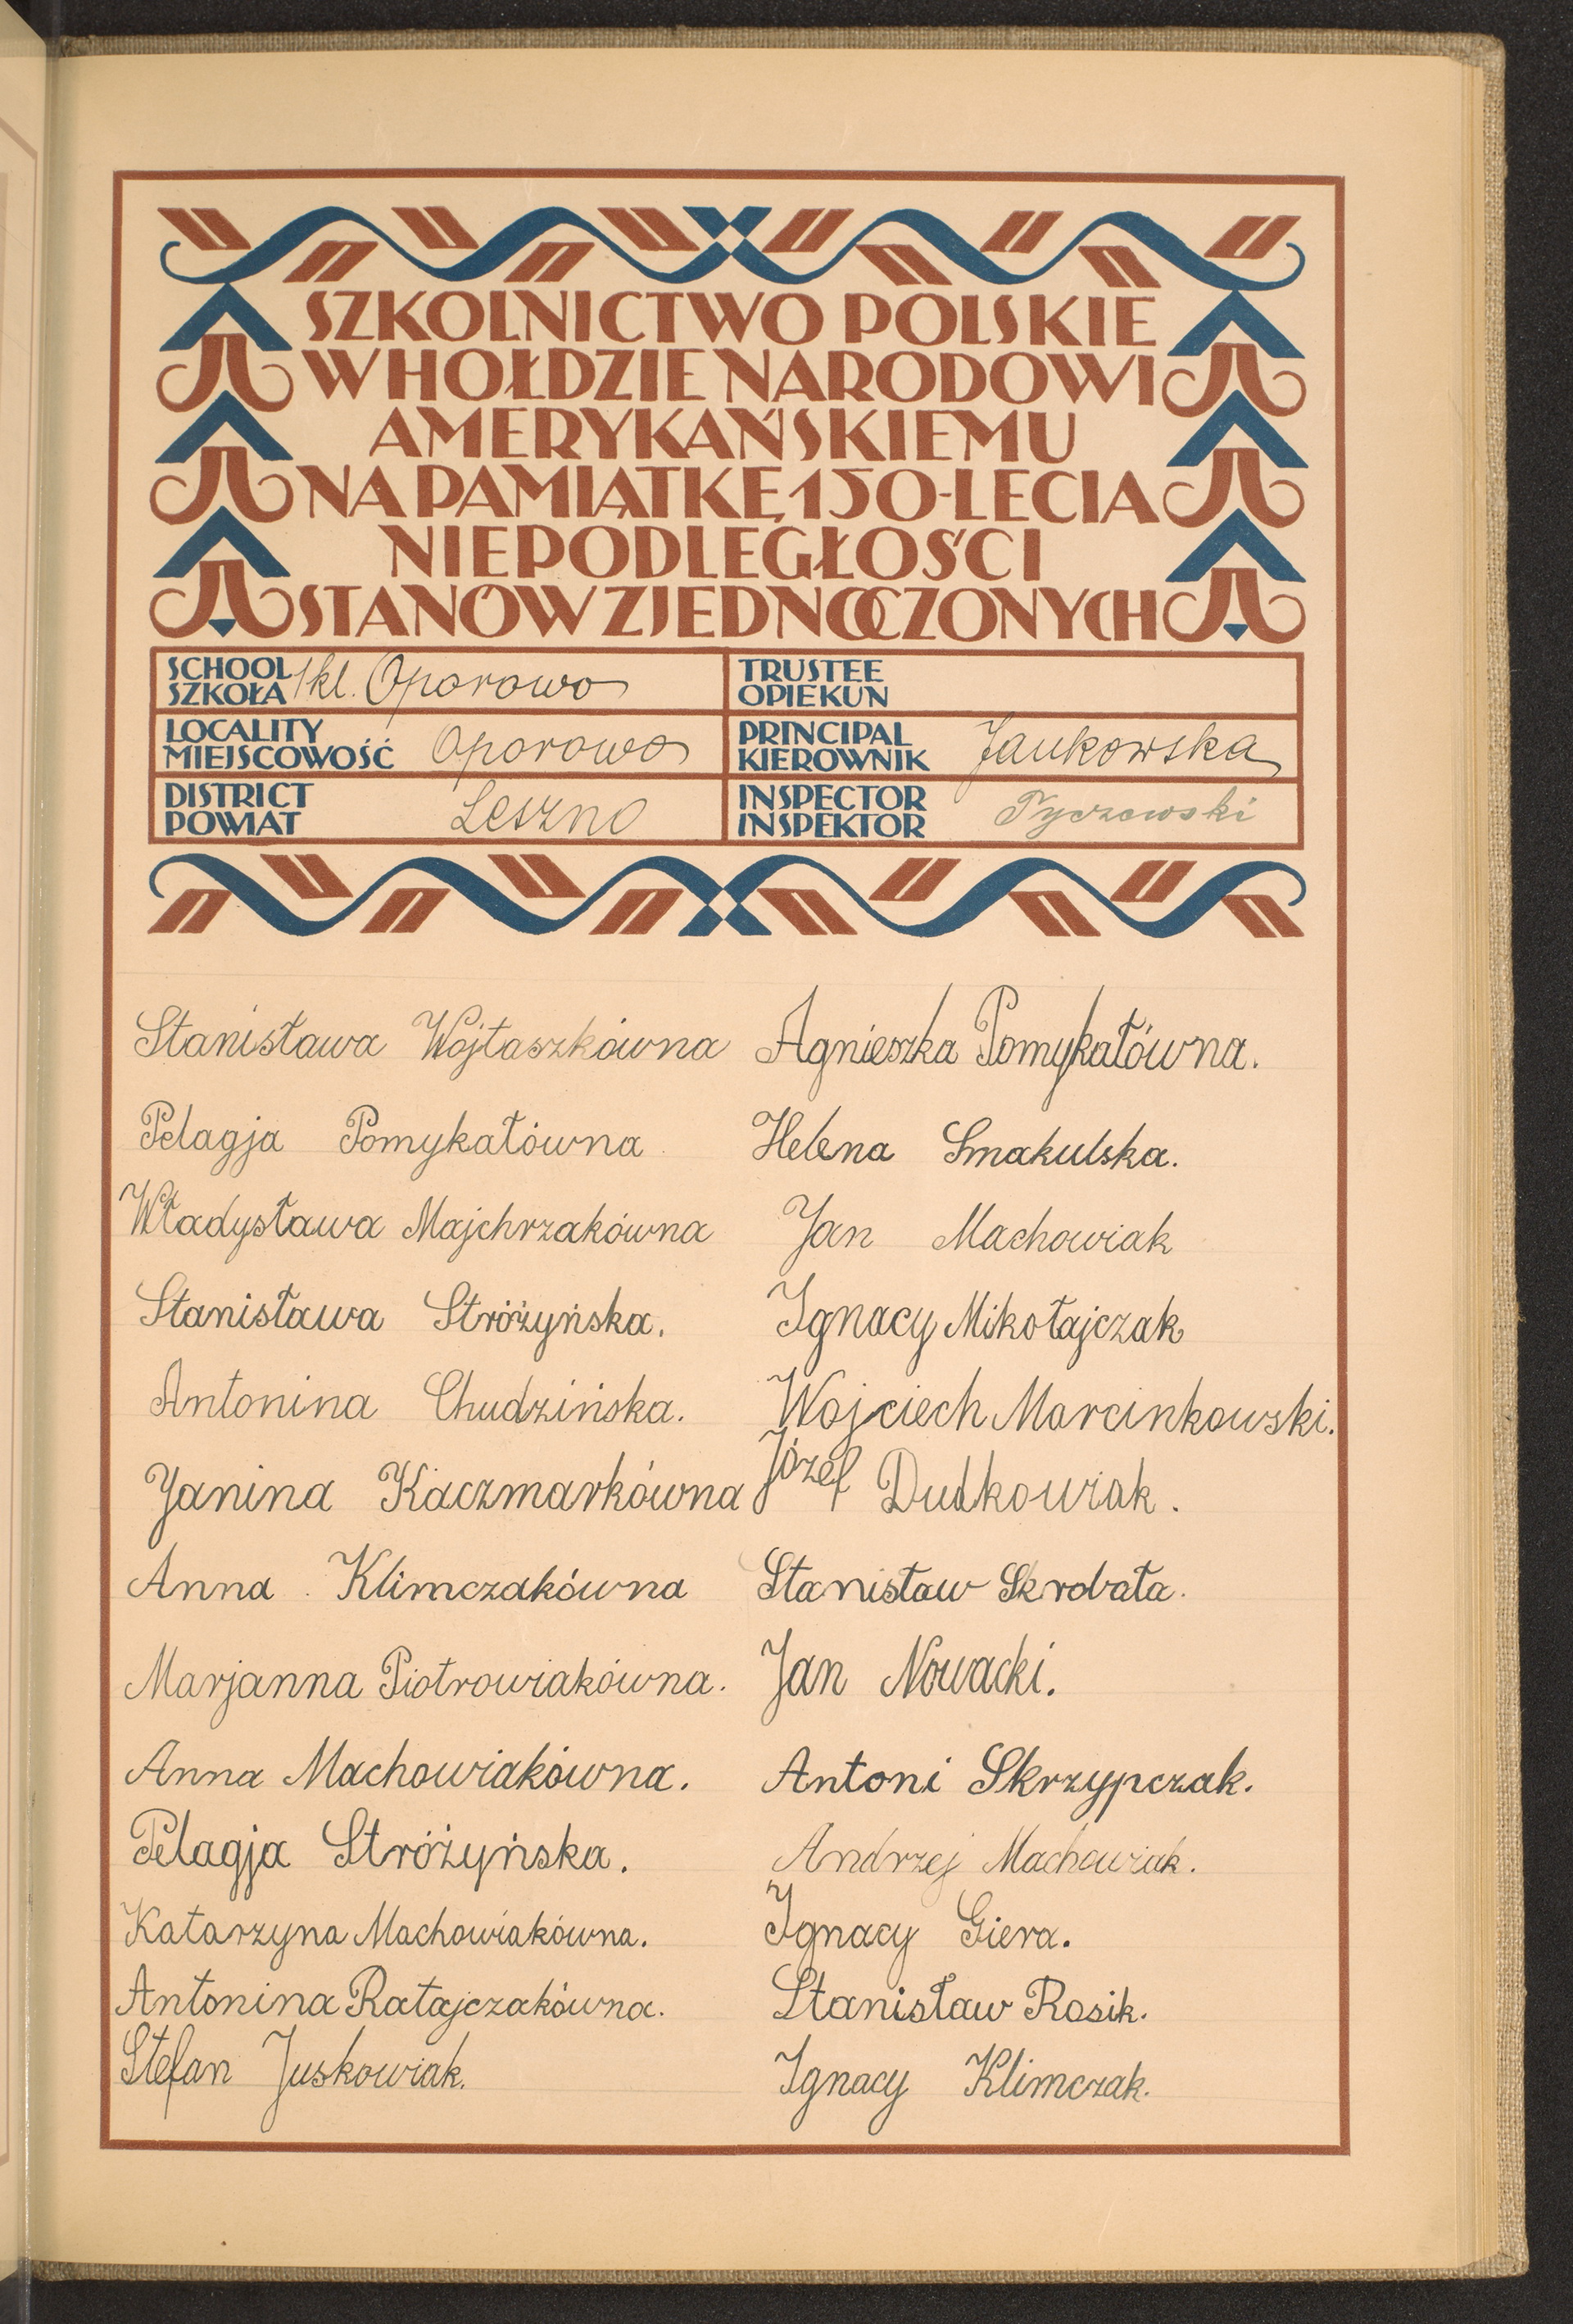 SZKOLNICTWO POLSKIE
W HOŁDZIE NARODOWI
AMERYKAŃSKIEMU
NA PAMIĄTKĘ 150-LECIA
NIEPODLEGŁOŚCI
STANÓW ZJEDNOCZONYCH
SCHOOL
SZKOŁA 1 kl. Oporowo
TRUSTEE
OPIEKUN
LOCALITY
MIEJSCOWOŚĆ Oporowo
PRINCIPAL
KIEROWNIK Jankowska
DISTRICT
POWIAT Leszno
INSPECTOR
INSPEKTOR Tyczewski
Stanisława Wojtaszkówna
Pelagja Pomykałówna
Władysława Majchrzakówna
Stanisława Stróżyńska.
Antonina Chudzińska.
Janina Kaczmarkówna
Anna Klimczakówna
Marjanna Piotrowiakówna.
Anna Machowiakówna.
Pelagja Stróżyńska.
Katarzyna Machowiakówna.
Antonina Ratajczakówna.
Stefan Juskowiak.
Agnieszka Pomykałówna.
Helena Smakulska.
Jan Machowiak
Ignacy Mikołajczak
Wojciech Marcinkowski.
Józef Dudkowiak.
Stanisław Skrobała.
Jan Nowacki.
Antoni Skrzypczak.
Andrzej Machowiak.
Ignacy Giera.
Stanisław Rosik.
Ignacy Klimczak.